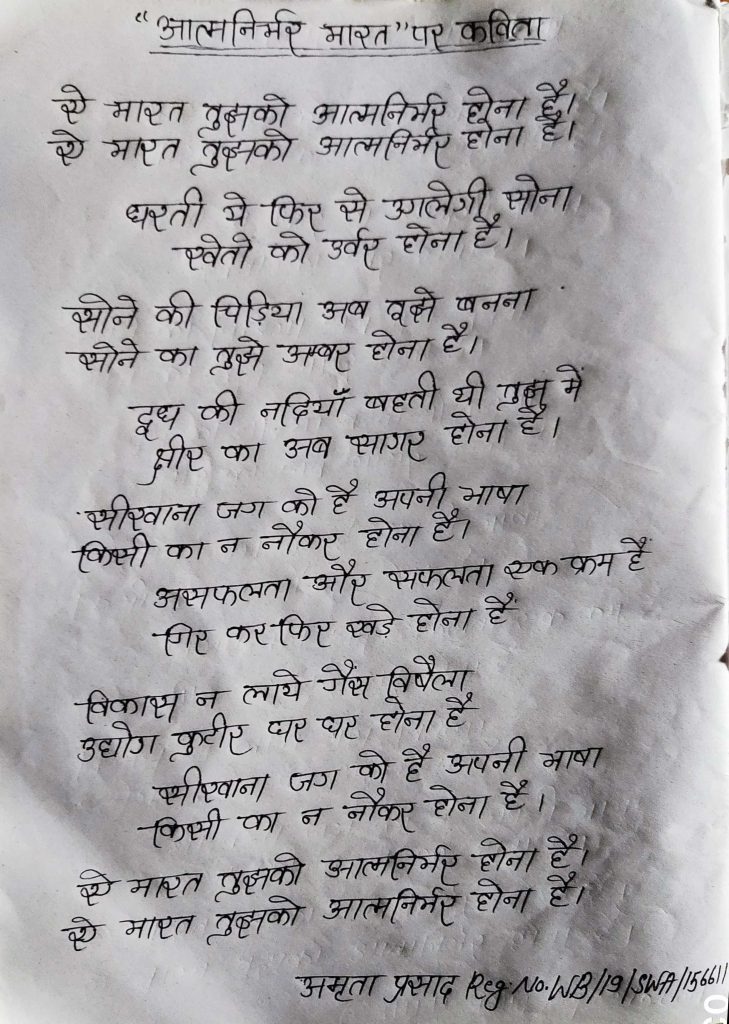 "आत्मनिर्भर भारत" पर कविता
ऐ भारत तुझको आत्मनिर्भर होना है।
ऐ भारत तुझको आत्मनिर्भर होना है।
धरती ये फिर से उगलेगी सोना
खेतो को उर्वर होना है।
सोने की चिड़िया अब तूझे बनना
सोने का तुझे अम्बर होना है।
दूध की नदियाँ बहती थी तुझ में
क्षीर का अब सागर होना है।
सीखाना जग को है अपनी भाषा
किसी का न नौकर होना है।
असफलता और सफलता एक क्रम है
गिर कर फिर खड़े होना है
विकास न लाये गैस विषैला
उद्योग कुटीर घर घर होना है
सीखाना जग को है अपनी भाषा
किसी का न नौकर होना है।
ऐ भारत तुझको आत्मनिर्भर होना है।
ऐ भारत तुझको आत्मनिर्भर होना है।
अमृता प्रसाद Reg. No. WB/19/SWA/156611